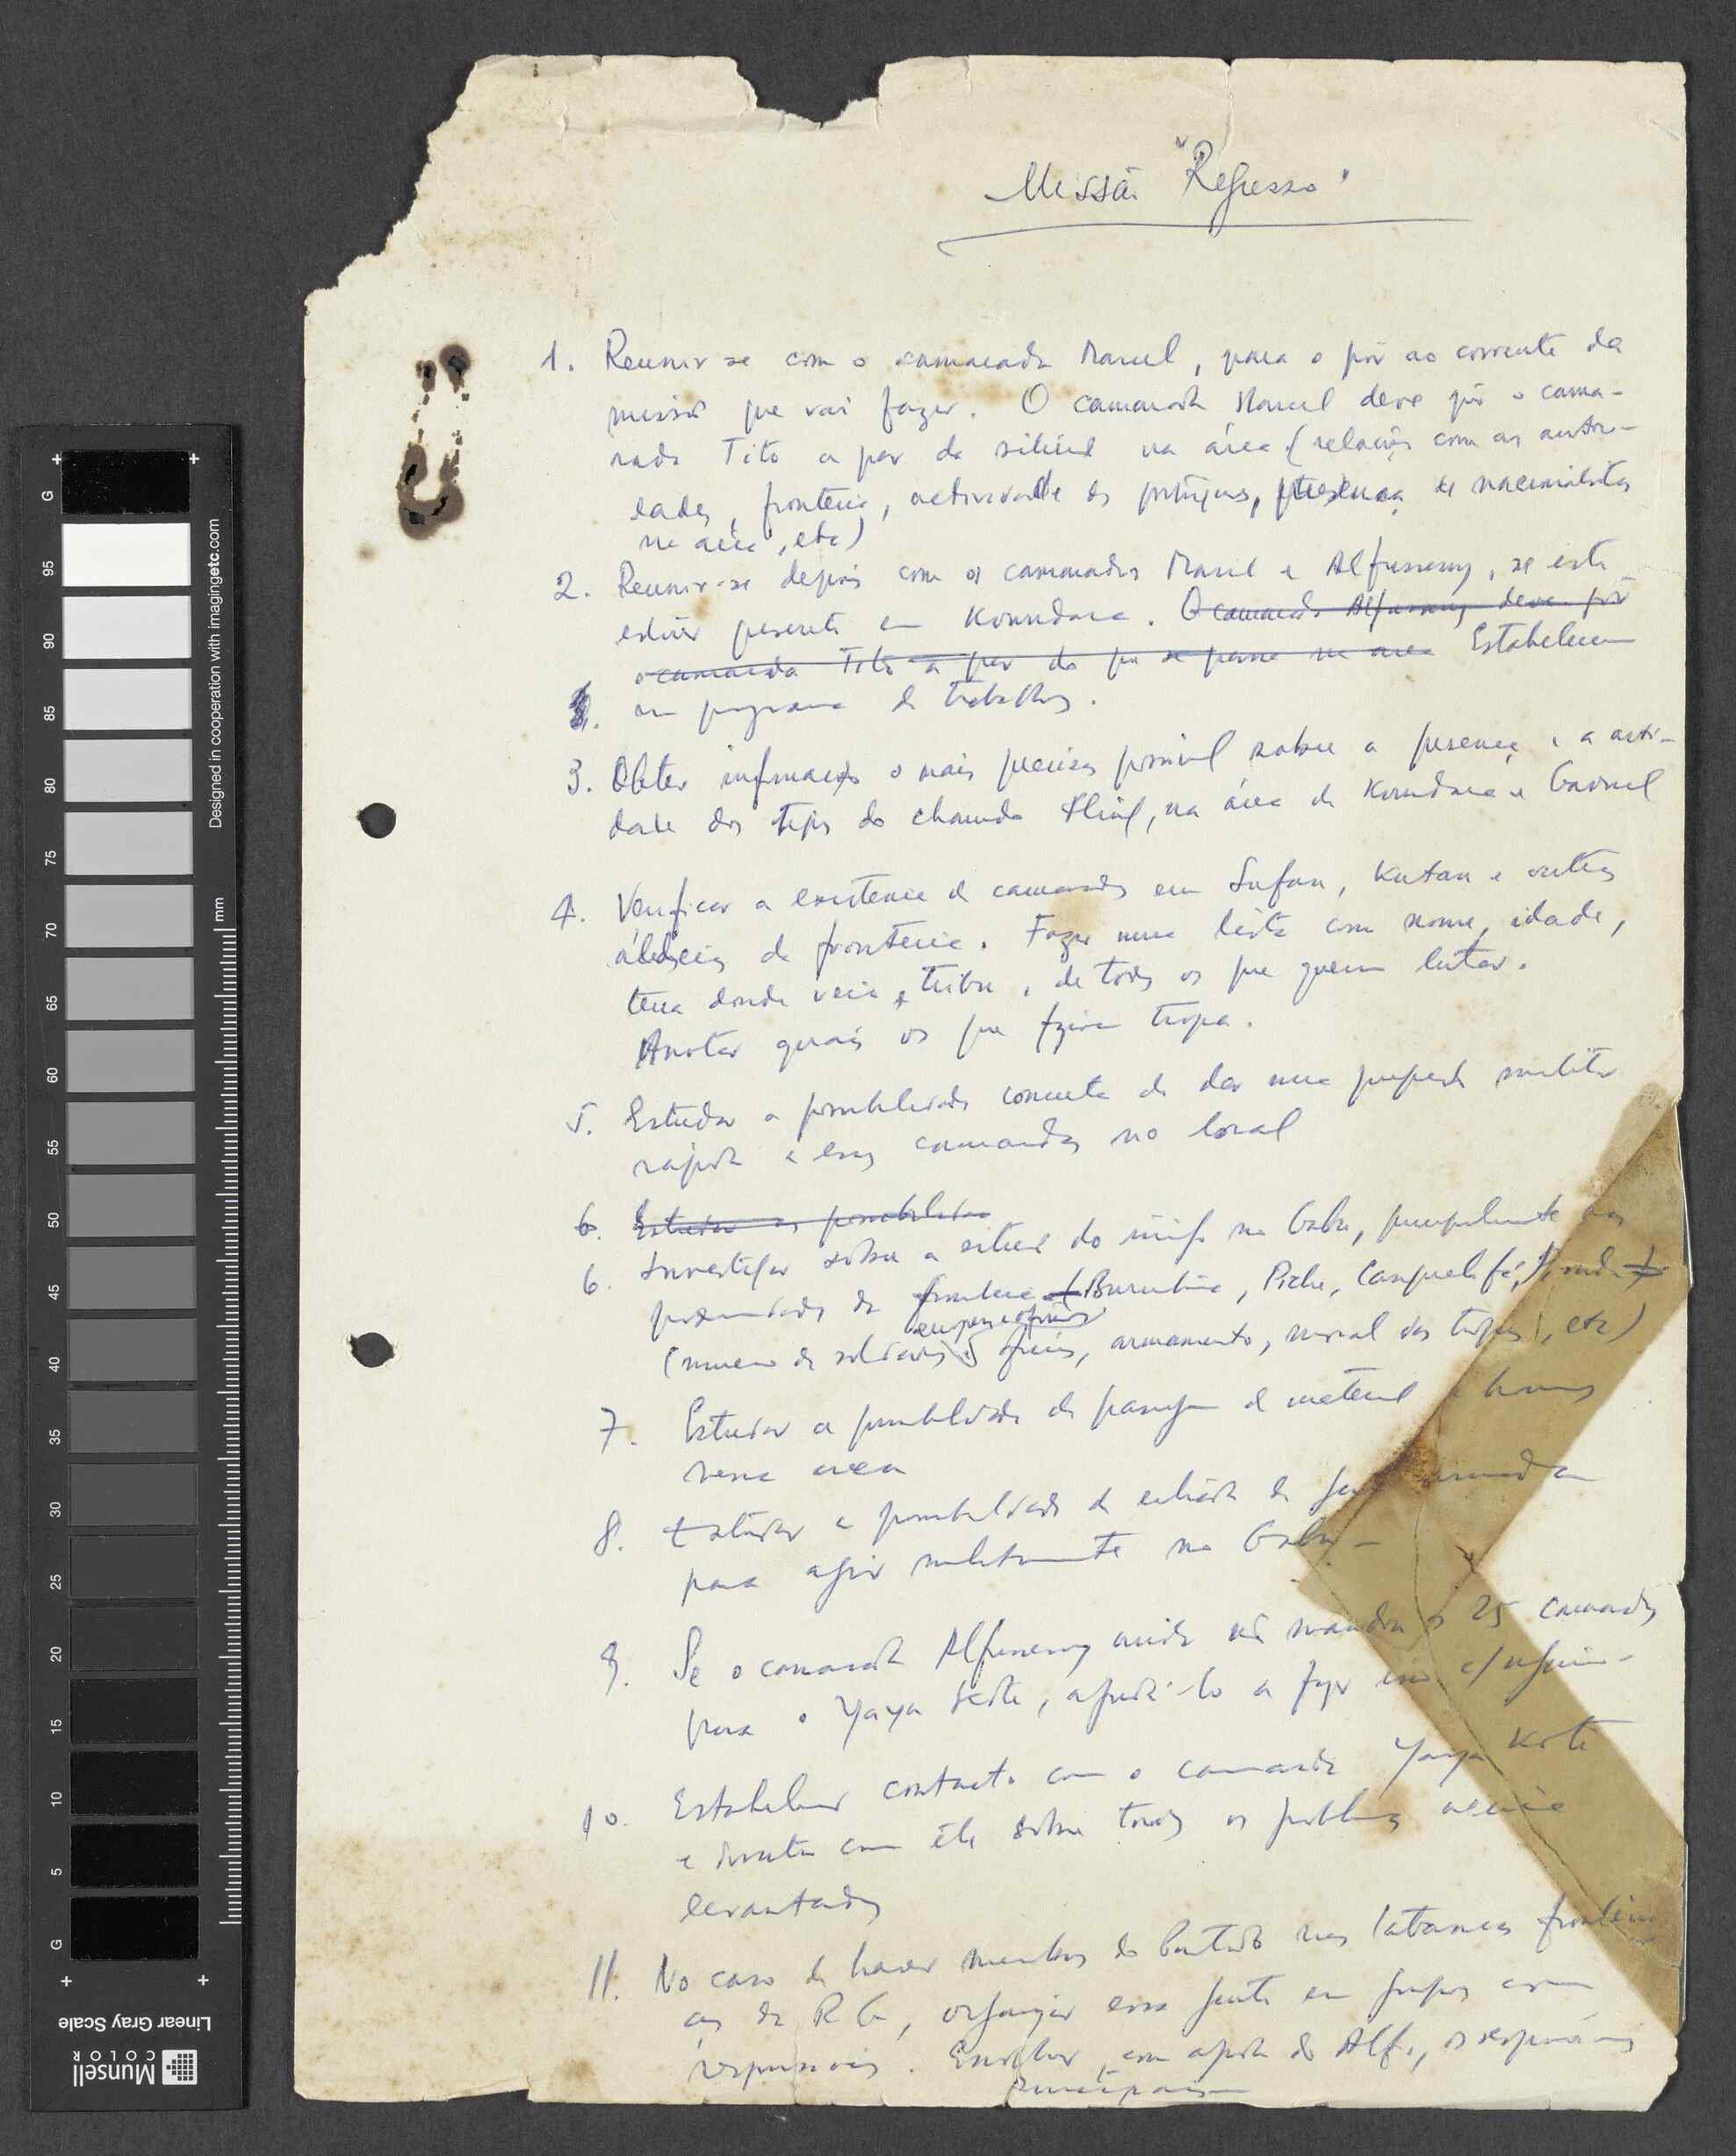 Missão "Regresso"
1. Reunir-se com o camarada Marcel, para o pôr ao corrente da
missão que vai fazer. O camarada Marcel deve pôr o cama-
rada Tito a par da situação na área (relações com as autori-
dades, fronteira, actividade dos portugueses, presença de nacionalistas
na área, etc)
2. Reunir-se depois com os camaradas Marcel e Alfusseny, se este
estiver presente em Koundara. O camarada Alfusseny deve pôr
o camarada Tito a par do que se passa na area Estabelecer
um programa de trabalhos.
3. Obter informações o mais precisas possível sobre a presença e a activi-
dade dos tipos do chamado Fling, na área de Koundara e Gaoual
4. Verificar a existencia de camaradas em Sufan, Kutan e outras
aldeias da fronteira. Fazer uma lista com nome, idade,
terra donde veio, tribu, de todos os que querem lutar.
Anotar quais os que fizeram tropa.
5. Estudar a possibilidade concreta de dar uma preparação militar
rápida a esses camaradas no local
6. Estudar as possibilidades
6. Investigar sobre a situação do inimigo no Gabu, principalmente nas
proximidades da fronteira (Buruntuma, Piche, Canquelifá,
europeus africanos
(numero de soldados e oficiais, armamento, moral das tropas, etc)
7. Estudar a possibilidade de passagem de material e homens
nessa area
8. Estudar a possibilidade de entrada de gente armada
para agir militarmente no Gabu-
9. Se o camarada Alfusseny ainda não mandou os 25 camaradas
para o Yaya Koté, ajudá-lo a fazer isso c/
10. Estabelecer contacto com o camarada Yaya Koté
e discutir com êle sobre todos os problemas acima
levantados
11. No caso de haver membros do Partido nas tabancas fronteiri-
ças da R G, organizar essa gente em grupos com
responsáveis. Escolher, com ajuda do Alf., os responsáveis
principais
G
95
90
85
80
75
70
65
60
55
50
45
40
35
30
25
20
15
10
5
G
mm
Designed in cooperation with imagingetc.com
Linear Gray Scale
Munsell
COLOR